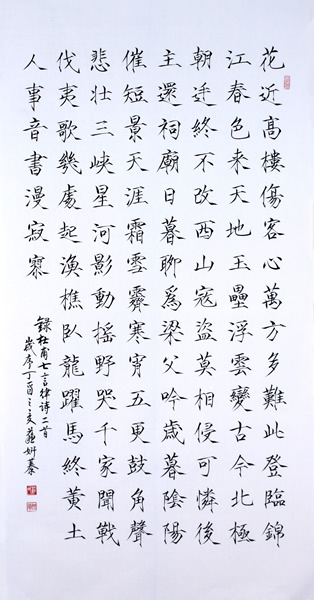 花近高樓傷客心萬方多難此登臨錦
江春色来天地玉壘浮雲變古今北極
朝廷終不改西山寇盜莫相侵可憐後
主還祠廟日暮聊爲梁父吟歲暮陰陽
催短景天涯霜雪霽寒宵五更鼓角聲
悲壯三峽星河影動摇野哭千家聞戰
伐夷歌幾處起漁樵臥龍躍馬終黃土
人事音書漫寂寥
録杜甫七言律詩二首
歲序丁酉之